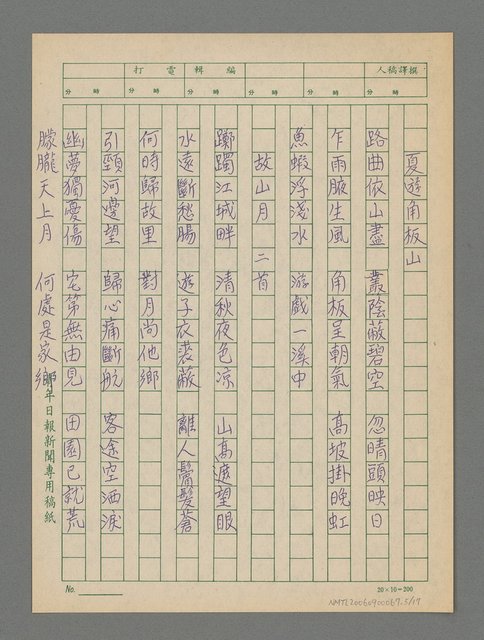 撰譯稿人
編輯
電打
時 分 時 分 時 分 時 分
夏遊角板山
路曲依山盡 叢陰蔽碧空 忽晴頭映日
乍雨腋生風 角板呈朝氣 高坡掛晚虹
魚蝦浮淺水 游戲一溪中
故山月 二首
躑躅江城畔 清秋夜色凉 山高遮望眼
水遠斷愁腸 遊子衣裘蔽 離人鬢髮蒼
何時歸故里 對月尚他鄉
引頸河邊望 歸心痛斷航 客途空洒淚
幽夢獨憂傷 宅第無由見 田園已就荒
朦朧天上月 何處是家鄉
年日報新聞專用稿紙
No.
20×10=200
NMTL20060900067.5/17